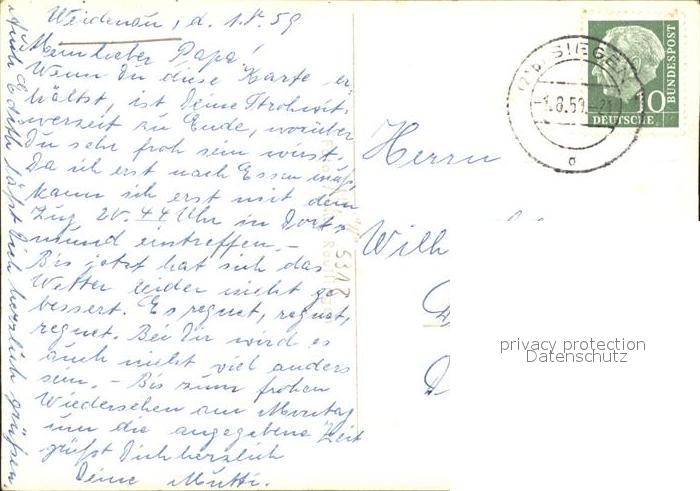 Weidenau, d. 1.8.59
Mein lieber Papa!
Wenn Du diese Karte er-
hältst, ist Deine Strohwit-
werzeit zu Ende, worüber
Du sehr froh sein wirst.
Da ich erst nach Essen muß,
kann ich erst mit dem
Zug 20.44 Uhr in Dort-
mund eintreffen. –
Bis jetzt hat sich das
Wetter leider nicht ge-
bessert. Es regnet, regnet,
regnet. Bei Dir wird es
auch nicht viel anders
sein. – Bis zum frohen
Wiedersehen am Montag
um die angegebene Zeit
grüßt Dich herzlich
Deine Mutti.
Auch Edith läßt Dich herzlich grüßen
SIEGEN
-1.8.59-21
a
10
DEUTSCHE
BUNDESPOST
Herrn
Wilh
D
D
5318
privacy protection
Datenschutz